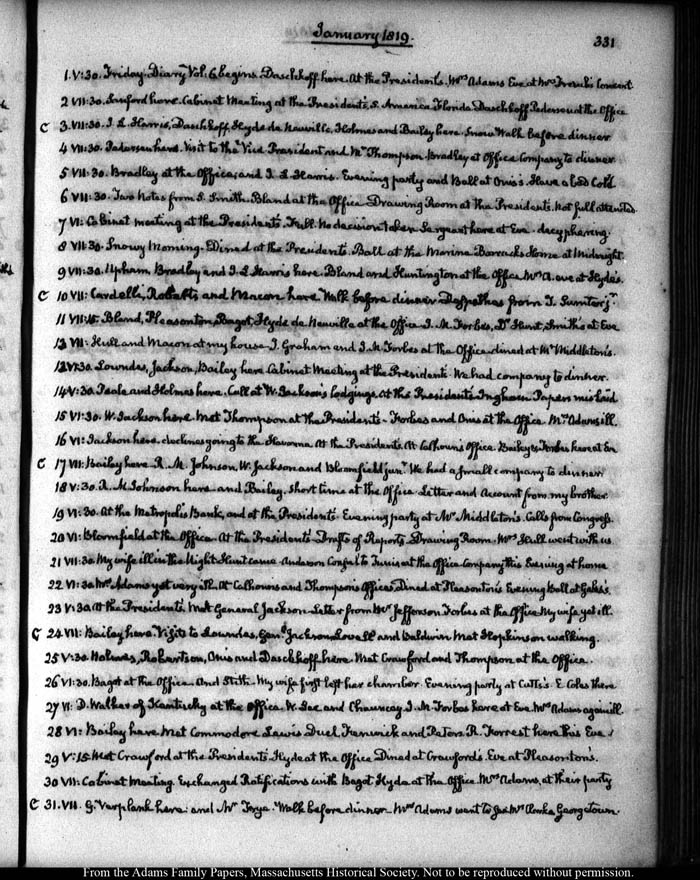 January 1819.
331
1. V:30. Friday. Diary Vol. 6 begins. Daschkoff here. At the Presidents. Mrs Adams Eve at Mrs
2 VII:30. Sanford here. Cabinet Meeting at the President's. S. America Florida Daschkoff Pedersen at the Office
C 3. VII:30. J. L. Harris, Daschkoff, Hyde de Neuville, Holmes and Bailey here. Snow Walk before dinner
4 VII:30. Pedersen here. Visit to the Vice President and Mr Thompson. Bradley at Office Company to dinner
5 VII:30. Bradley at the Office, and J. L. Harris. Evening party and Ball at Onis's. Have a bad Cold.
6 VII:30. Two Notes from S. Smith. Bland at the Office Drawing Room at the Presidents. Not full attended.
7 VI: Cabinet meeting at the Presidents. Full. No decision taken. Sergeant here at Eve. decyphering.
8 VII:30. Snowy Morning. Dined at the Presidents. Ball at the Marine Barracks Home at Midnight.
9 VII:30. Upham Bradley and J. L. Harris here. Bland and Huntington at the Office Mrs A. eve at Hyde's.
C 10 VII: Cardelli, Roberts and Macon here Walk before dinner Despatches from T. Sumter jr.
11 VII:15. Bland, Pleasonton, Bagot, Hyde de Neuville at the Office J. M. Forbes, Dr Hunt, Smith's at Eve
12 VII: Hull and Macon at my house J. Graham and J. M. Forbes at the Office dined at Mr Middleton's.
13 VI:30. Lowndes, Jackson, Bailey here Cabinet Meeting at the Presidents. We had company to dinner.
14 V:30. Peale and Holmes here. Call at W. Jackson's lodgings. At the Presidents Ingham Papers mislaid
15 VI:30. W. Jackson here. Met Thompson at the Presidents - Forbes and Onis at the Office. Mrs Adams ill.
16 VI: Jackson here. declines going to the Havanna. At the Presidents. At Calhoun's Office. Bailey & Forbes here at Eve
C 17 VII: Bailey here. R. M. Johnson, W. Jackson and Bloomfield junr. We had a small company to dinner.
18 V:30. R. M. Johnson here and Bailey. Short time at the Office Letter and Account from my brother.
19 VI:30. At the Metropolis Bank, and at the Presidents. Evening party at Mr Middleton's. Calls from Congress.
20 VI: Bloomfield at the Office. At the Presidents Drafts of Reports. Drawing Room. Mrs Hull went with us.
21 VII:30. My wife ill in the Night Hunt came Anderson Consul to Tunis at the Office Company this Evening at home
22 VI:30. Mrs Adams yet very ill. At Calhoun's and Thompson's Offices. Dined at Pleasonton's Evening Ball at Gales's.
23 V:30. At the Presidents. Met General Jackson. Letter from Mr Jefferson Forbes at the Office My wife yet ill.
C 24 VII: Bailey here. Visits to Lowndes, Genl Jackson Lovell and Baldwin. Met Hopkinson walking.
25 V:30. Holmes, Robertson, Onis and Daschkoff here. Met Crawford and Thompson at the Office.
26 VI:30. Bagot at the Office. And Stith. My wife first left her chamber. Evening party at Cutts's. E. Coles there
27 VI: D. Walker of Kentucky at the Office. W. Lee and Chauncey J. M. Forbes here at Eve. Mrs Adams again ill.
28 VI: Bailey here. Met Commodore Lewis Duel Fenwick and Peters. R. Forrest here this Eve.
29 V:15. Met Crawford at the Presidents. Hyde at the Office Dined at Crawford's. Eve at Pleasonton's.
30 VII: Cabinet Meeting. Exchanged Ratifications with Bagot. Hyde at the Office. Mrs Adams, at their party
C 31. VII. G. Verplank here: and Mr Frye. Walk before dinner. Mrs Adams went to see Mrs Georgetown.
From the Adams Family Papers, Massachusetts Historical Society. Not to be reproduced without permission.